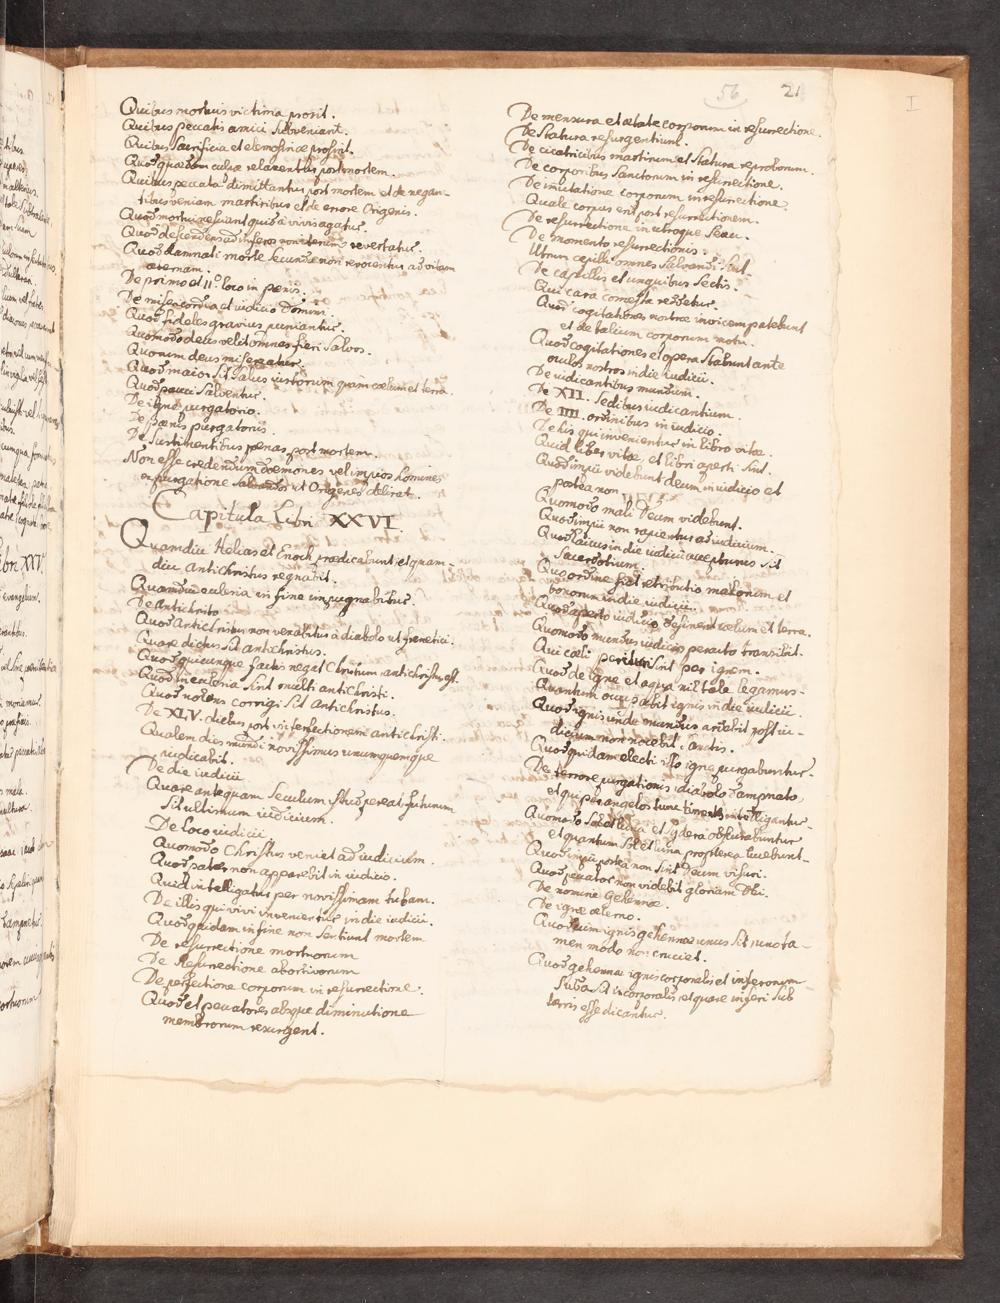 56 21
I
Quibus mortuis victima prosit.
Quibus peccatis amici subveniant.
Quibus sacrificia et elemosinæ prosint.
Quod quædam culpæ relaxentur post mortem.
Quibus peccata dimittantur post mortem et de negan-
tibus veniam martiribus et de errore Origenis.
Quod mortui resciant quid a vivis agatur.
Quod descendens ad inferos non iterum revertatur.
Quod damnati morte secunda non revocentur ad vitam
æternam.
De primo et IIº. loco in pœnis.
De misericordia et iudicio Domini.
Quod fideles gravius puniantur.
Quomodo deus velit omnes fieri salvos.
Quorum deus misereatur.
Quod maior sit salus iustorum quam cœlum et terra.
Quod pauci salventur.
De igne purgatorio.
De pœnis purgatoriis.
De sustinentibus pœnas post mortem.
Non esse credendum dæmones vel impios homines
ex purgatione salvandos ut Origenes delirat.
Capitula Libri XXVI
Quamdiu Helias et Enoch prædicabunt et quam-
diu antichristus regnabit.
Quamdiu ecclesia in fine inpugnabitur.
De Antichristo
Quod Antichristus non veniat ictus à diabolo ut frenetici.
Quare dictus sit antichristus.
Quod quicunque factis negat Christum antichristus est.
Quod in ecclesia sint multi antichristi.
Quod nolens corrigi sit Antichristus.
De XLV. diebus post interfectionem antichristi.
Qualem dies mundi novissimus unumquemque
iudicabit.
De die iudicii
Quare antequam seculum istud pereat futurum
sit ultimum iudicium.
De loco iudicii
Quomodo Christus veniet ad iudicium.
Quod pater non apparebit in iudicio.
Quid intelligatur per novissimam tubam.
De illis qui vivi invenientur in die iudicii.
Quod quidam in fine non sentiunt mortem
De resurrectione mortuorum
De Resurrectione abortivorum
De perfectione corporum in resurrectione.
Quod et peccatores absque diminutione
membrorum resurgent.
De mensura et ætate corporum in resurrectione.
De statura resurgentium.
De cicatricibus martirum et statura reproborum.
De corporibus sanctorum in resurrectione.
De inmutatione corporum in resurrectione.
Quale corpus erit post resurrectionem.
De resurrectione in utroque sexu.
De momento resurrectionis.
Utrum capilli omnes salvandi sint.
De capillis et unguibus sectis.
Qui cara comesta reddetur.
Quod cogitationes nostræ invicem patebunt
et de talium corporum motu.
Quod cogitationes et opera stabunt ante
oculos nostros in die iudicii.
De iudicantibus mundum.
De XII. sedibus iudicantium.
De IIII. ordinibus in iudicio.
De his qui invenientur in libro vitæ.
Quid liber vitæ, et libri aperti sint.
Quod impii videbunt deum in iudicio et
postea non
Quomodo mali Deum videbunt.
Quod impii non rapientur ad iudicium.
Quod laicus in die iudicii accepturus sit
sacerdotium.
Quo ordine fiet retributio malorum et
bonorum in die iudicii.
Quod peracto iudicio desinent cœlum et terra.
Quomodo mundus iudicio peracto transibit.
Qui cœli perituri sint per ignem.
Quod de igne et aqua nil tale legamus.
Quantum occupabit ignis in die iudicii.
Quod ignis unde mundus ardebit post iu-
dicium non nocebit
Quod quidam electi isto igne purgabuntur.
De terrore purgationis diabolo dampnato,
et qui per angelos tunc timentes intelligantur.
Quomodo sol et luna et sydera obscurabuntur
et quantum sol et luna propterea lucebunt.
Quod impii postea non sint Deum visuri.
Quod peccator non videbit gloriam Dei.
De nomine Gehennæ.
De igne æterno.
Quod cum ignis gehennæ unus sit uno ta-
men modo non cruciet.
Quod gehennæ ignis corporalis et inferorum
sit incorporalis, et quare inferi sub
terris esse dicantur.